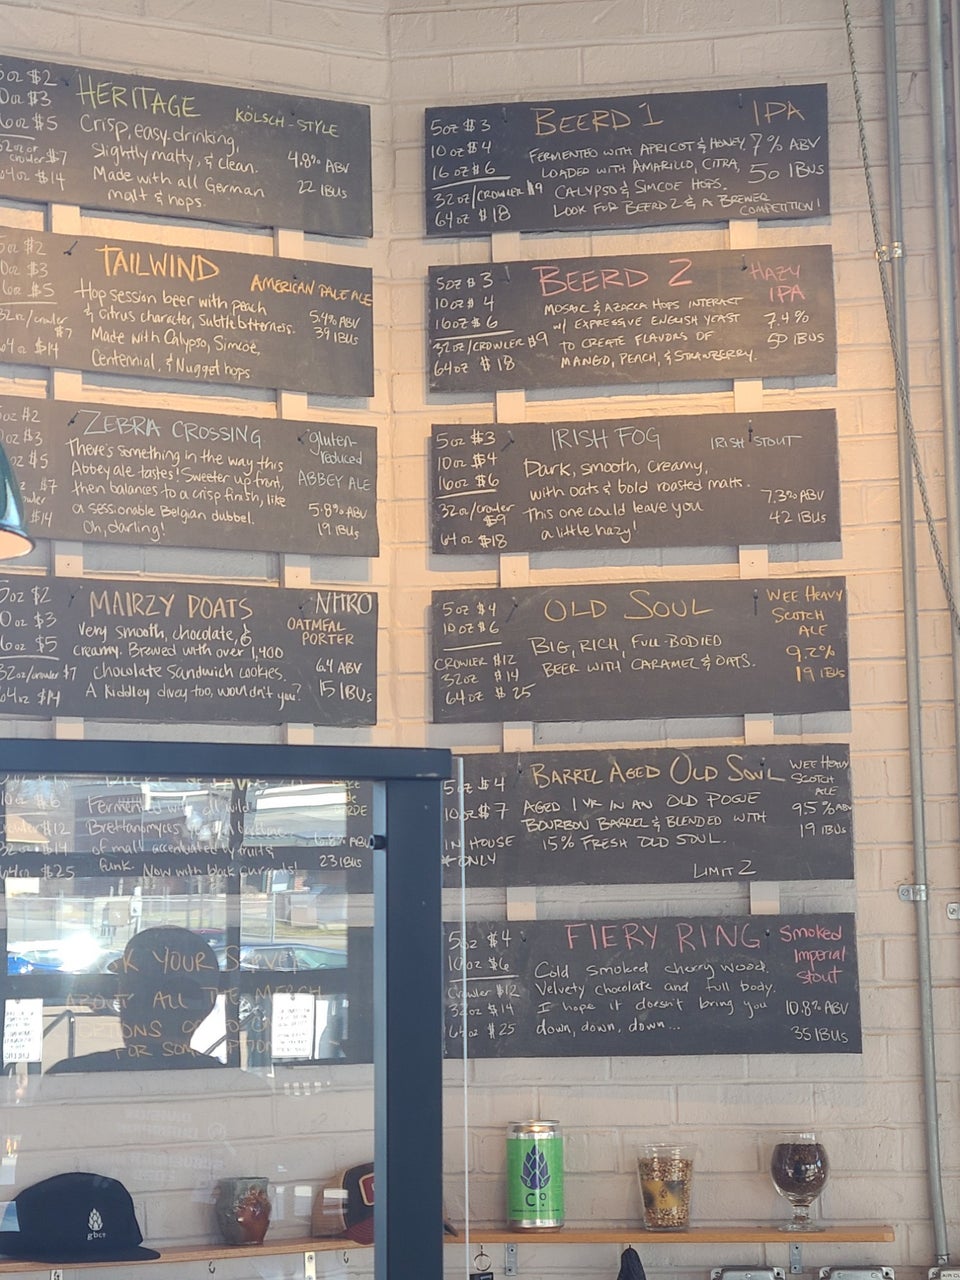 5oz $2
HERITAGE
KÖLSCH-STYLE
10oz $3
Crisp, easy drinking,
6oz $5
slightly malty, & clean.
4.8% ABV
crowler $7
Made with all German
22 IBUS
64oz $14
malt & hops.
oz $2
TAILWIND
AMERICAN PALE ALE
oz $3
Hop session beer with peach
6oz $5
& citrus character, subtle bitterness.
5.4% ABV
39 IBUS
32oz/crowler
$7
Made with Calypso, Simcoe,
64oz $14
Centennial, & Nugget hops
5oz $2
ZEBRA CROSSING
gluten-
reduced
0oz $3
There's something in the way this
ABBEY ALE
oz $5
Abbey ale tastes! Sweeter up front,
$7
then balances to a crisp finish, like
5.8% ABV
a sessionable Belgian dubbel.
19 IBUS
$14
Oh, darling!
5oz $2
MAIRZY DOATS
NITRO
0oz $3
Very smooth, chocolate, &
OATMEAL
PORTER
6oz $5
creamy. Brewed with over 1,400
32oz/crowler $7
chocolate sandwich cookies.
6.4 ABV
64oz $14
A kiddley divey too, wouldn't you?
15 IBUs
Fermented with all wild
crowler $12
Brettanomyces
of malt accentuated by fruit &
64oz $25
funk. Now with black currants!
23 IBUs
YOUR SERVER
ABOUT ALL THE MERCH
5oz $3
BEERD 1
IPA
10oz $4
FERMENTED WITH APRICOT & HONEY,
7% ABV
16oz $6
LOADED WITH AMARILLO, CITRA,
50 IBUS
32oz/CROWLER $9
CALYPSO & SIMCOE HOPS.
64oz $18
LOOK FOR BEERD 2 & A BREWER
COMPETITION!
5oz $3
BEERD 2
HAZY
IPA
10oz $4
MOSAIC & AZACCA HOPS INTERACT
16oz $6
W/ EXPRESSIVE ENGLISH YEAST
7.4%
32oz/CROWLER $9
TO CREATE FLAVORS OF
50 IBUS
64oz $18
MANGO, PEACH, & STRAWBERRY.
5oz $3
IRISH FOG
IRISH STOUT
10oz $4
Dark, smooth, creamy,
16oz $6
with oats & bold roasted malts.
7.3% ABV
32oz/crowler
$9
This one could leave you
42 IBUs
64oz $18
a little hazy!
5oz $4
OLD SOUL
WEE HEAVY
SCOTCH
ALE
10oz $6
BIG, RICH, FULL BODIED
CROWLER $12
BEER WITH CARAMEL & OATS.
9.2%
32oz $14
19 IBUS
64oz $25
5oz $4
BARREL AGED OLD SOUL
WEE HEAVY
SCOTCH
ALE
10oz $7
AGED 1 YR IN AN OLD POGUE
9.5% ABV
BOURBON BARREL & BLENDED WITH
19 IBUS
IN HOUSE
15% FRESH OLD SOUL.
*ONLY
LIMIT 2
5oz $4
FIERY RING
Smoked
Imperial
Stout
10oz $6
Cold smoked cherry wood.
Crowler $12
Velvety chocolate and full body.
32oz $14
I hope it doesn't bring you
10.8% ABV
64oz $25
down, down, down...
35 IBUs
Co.
gbco